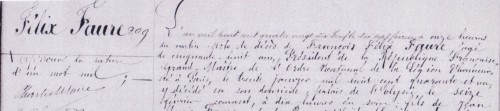 Félix Faure 209
L'an mil huit cent quatre vingt dix neuf le dix sept février à onze heures
du matin. Acte de décès de François Félix Faure âgé
de cinquante huit ans, Président de la République Française,
Grand Maître de l'Ordre National de la Légion d'honneur,
né à Paris, le trente janvier mil huit cent quarante et un,
y décédé en son domicile, palais de l'Elysée, le seize
février courant, à dix heures du soir, fils de
approuvé la rature
d'un mot nul